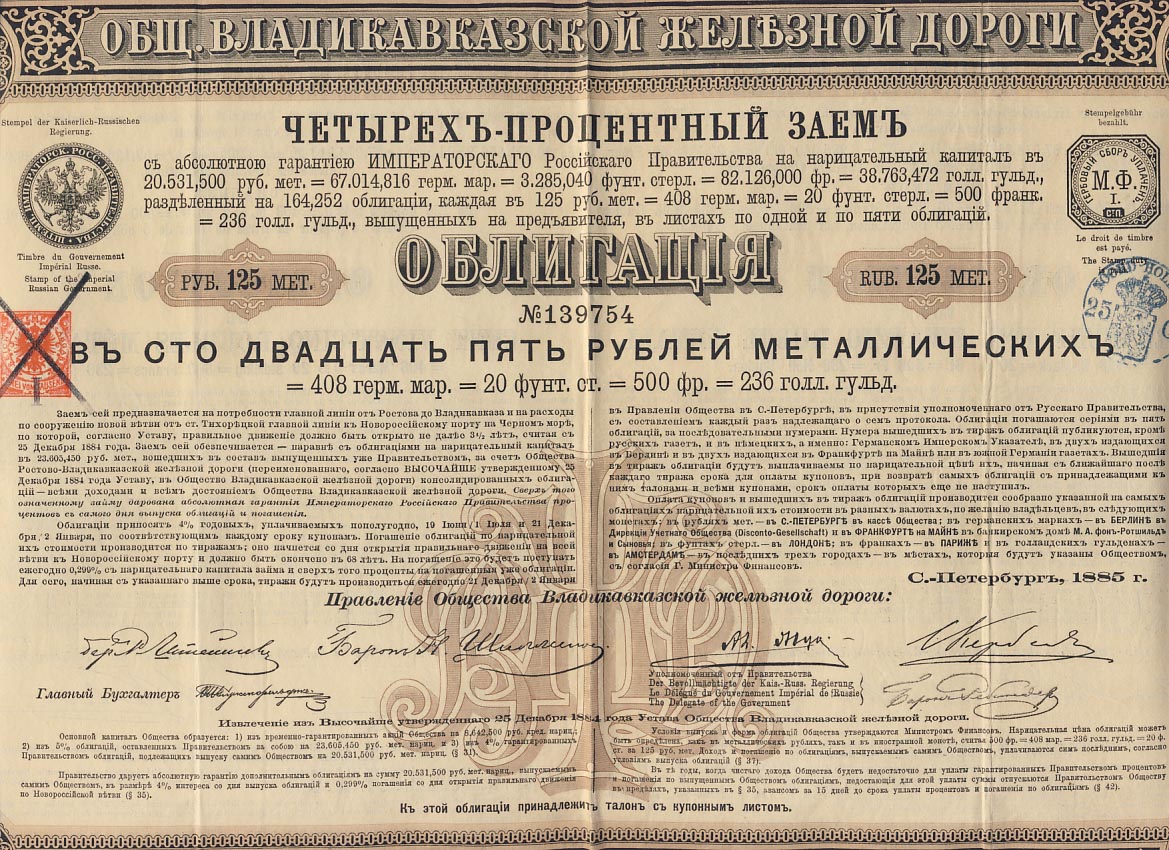 ОБЩ. ВЛАДИКАВКАЗСКОЙ ЖЕЛѢЗНОЙ ДОРОГИ
Stempel der Kaiserlich-Russischen
Regierung.
Stempelgebühr
bezahlt.
ЧЕТЫРЕХЪ-ПРОЦЕНТНЫЙ ЗАЕМЪ
съ абсолютною гарантіею ИМПЕРАТОРСКАГО Россійскаго Правительства на нарицательный капиталъ въ
20.531,500 руб. мет. = 67.014,816 герм. мар. = 3.285,040 фунт. стерл. = 82.126,000 фр. = 38.763,472 голл. гульд.,
раздѣленный на 164,252 облигаціи, каждая въ 125 руб. мет. = 408 герм. мар. = 20 фунт. стерл. = 500 франк.
= 236 голл. гульд., выпущенныхъ на предъявителя, въ листахъ по одной и по пяти облигацій.
ГЕРБОВЫЙ СБОРЪ УПЛАЧЕНЪ
М.Ф.
I.
СПБ
Timbre du Gouvernement
Impérial Russe.
Stamp of the Imperial
Russian Government.
Le droit de timbre
est payé.
The Stamp duty
ОБЛИГАЦІЯ
РУБ. 125 МЕТ.
RUB. 125 МЕТ.
№139754
25
ВЪ СТО ДВАДЦАТЬ ПЯТЬ РУБЛЕЙ МЕТАЛЛИЧЕСКИХЪ
= 408 герм. мар. = 20 фунт. ст. = 500 фр. = 236 голл. гульд.
Заемъ сей предназначается на потребности главной линіи отъ Ростова до Владикавказа и на расходы
по сооруженію новой вѣтви отъ ст. Тихорѣцкой главной линіи къ Новороссійскому порту на Черномъ морѣ,
по которой, согласно Уставу, правильное движеніе должно быть открыто не далѣе 3½ лѣтъ, считая съ
25 Декабря 1884 года. Заемъ сей обезпечивается — наравнѣ съ облигаціями на нарицательный капиталъ
въ 23.605,450 руб. мет., вошедшихъ въ составъ выпущенныхъ уже Правительствомъ, за счетъ Общества
Ростово-Владикавказской желѣзной дороги (переименованнаго, согласно ВЫСОЧАЙШЕ утвержденному 25
Декабря 1884 года Уставу, въ Общество Владикавказской желѣзной дороги) консолидированныхъ облига-
цій — всѣми доходами и всѣмъ достояніемъ Общества Владикавказской желѣзной дороги. Сверхъ того
означенному займу дарована абсолютная гарантія Императорскаго Россійскаго Правительства про-
центовъ съ самаго дня выпуска облигацій и погашенія.
Облигаціи приносятъ 4% годовыхъ, уплачиваемыхъ пополугодно, 19 Іюня/1 Іюля и 21 Дека-
бря/2 Января, по соотвѣтствующимъ каждому сроку купонамъ. Погашеніе облигацій по нарицательной
ихъ стоимости производится по тиражамъ; оно начнется со дня открытія правильнаго движенія на всей
вѣтви къ Новороссійскому порту и должно быть окончено въ 68 лѣтъ. На погашеніе это будетъ поступать
ежегодно 0,299% съ нарицательнаго капитала займа и сверхъ того проценты на погашенныя уже облигаціи.
Для сего, начиная съ указаннаго выше срока, тиражи будутъ производиться ежегодно 21 Декабря/2 Января
въ Правленіи Общества въ С.-Петербургѣ, въ присутствіи уполномоченнаго отъ Русскаго Правительства,
съ составленіемъ каждый разъ надлежащаго о семъ протокола. Облигаціи погашаются серіями въ пять
облигацій, за послѣдовательными нумерами. Нумера вышедшихъ въ тиражъ облигацій публикуются, кромѣ
русскихъ газетъ, и въ нѣмецкихъ, а именно: Германскомъ Имперскомъ Указателѣ, въ двухъ издающихся
въ Берлинѣ и въ двухъ издающихся въ Франкфуртѣ на Майнѣ или въ южной Германіи газетахъ. Вышедшія
въ тиражъ облигаціи будутъ выплачиваемы по нарицательной цѣнѣ ихъ, начиная съ ближайшаго послѣ
каждаго тиража срока для оплаты купоновъ, при возвратѣ самыхъ облигацій съ принадлежащими къ
нимъ талонами и всѣми купонами, срокъ оплаты которыхъ еще не наступилъ.
Оплата купоновъ и вышедшихъ въ тиражъ облигацій производится сообразно указанной на самыхъ
облигаціяхъ нарицательной ихъ стоимости въ разныхъ валютахъ, по желанію владѣльцевъ, въ слѣдующихъ
монетахъ: въ рубляхъ мет. — въ С.-ПЕТЕРБУРГѢ въ кассѣ Общества; въ германскихъ маркахъ — въ БЕРЛИНѢ въ
Дирекціи Учетнаго Общества (Disconto-Gesellschaft) и въ ФРАНКФУРТѢ на МАЙНѢ въ банкирскомъ домѣ М. А. фонъ-Ротшильдъ
и Сыновья; въ фунтахъ стерл. — въ ЛОНДОНѢ; въ франкахъ — въ ПАРИЖѢ и въ голландскихъ гульд. —
въ АМСТЕРДАМѢ — въ послѣднихъ трехъ городахъ — въ мѣстахъ, которыя будутъ указаны Обществомъ,
съ согласія Г. Министра Финансовъ.
С.-Петербургъ, 1885 г.
Правленіе Общества Владикавказской желѣзной дороги:
Главный Бухгалтеръ
Уполномоченный отъ Правительства
Der Bevollmächtigte der Kais.-Russ. Regierung
Le Délégué du Gouvernement Impérial de Russie
The Delegate of the Government
Извлеченіе изъ Высочайше утвержденнаго 25 Декабря 1884 года Устава Общества Владикавказской желѣзной дороги.
Основной капиталъ Общества образуется: 1) изъ временно-гарантированныхъ акцій Общества на 8,642,500 руб. кред. нариц.,
2) изъ 5% облигацій, оставленныхъ Правительствомъ за собою на 23,605,450 руб. мет. нариц. и 3) изъ 4% гарантированныхъ
Правительствомъ облигацій, подлежащихъ выпуску самимъ Обществомъ на 20.531,500 руб. мет. нариц. (§ 31).
Правительство даруетъ абсолютную гарантію дополнительнымъ облигаціямъ на сумму 20.531,500 руб. мет. нариц., выпускаемымъ
самимъ Обществомъ, въ размѣрѣ 4% интереса со дня выпуска облигацій и 0,299% погашенія со дня открытія правильнаго движенія
по Новороссійской вѣтви (§ 35).
Условія выпуска и форма облигацій Общества утверждаются Министромъ Финансовъ. Нарицательная цѣна облигацій можетъ
быть опредѣлена, какъ въ металлическихъ рубляхъ, такъ и въ иностранной монетѣ, считая 500 фр. = 408 мар. = 236 голл. гульд. = 20 ф.
ст. за 125 руб. мет. Доходъ и погашеніе по облигаціямъ, выпускаемымъ самимъ Обществомъ, уплачиваются симъ послѣднимъ, согласно
условіямъ выпуска облигацій (§ 37).
Въ тѣ годы, когда чистаго дохода Общества будетъ недостаточно для уплаты гарантированныхъ Правительствомъ процентовъ
и погашенія по выпущеннымъ Обществомъ облигаціямъ, недостающая для этой уплаты сумма отпускаются Правительствомъ Обществу
въ предѣлахъ, указанныхъ въ § 35, авансомъ за 15 дней до срока уплаты процентовъ и погашенія по облигаціямъ (§ 42).
Къ этой облигаціи принадлежитъ талонъ съ купоннымъ листомъ.